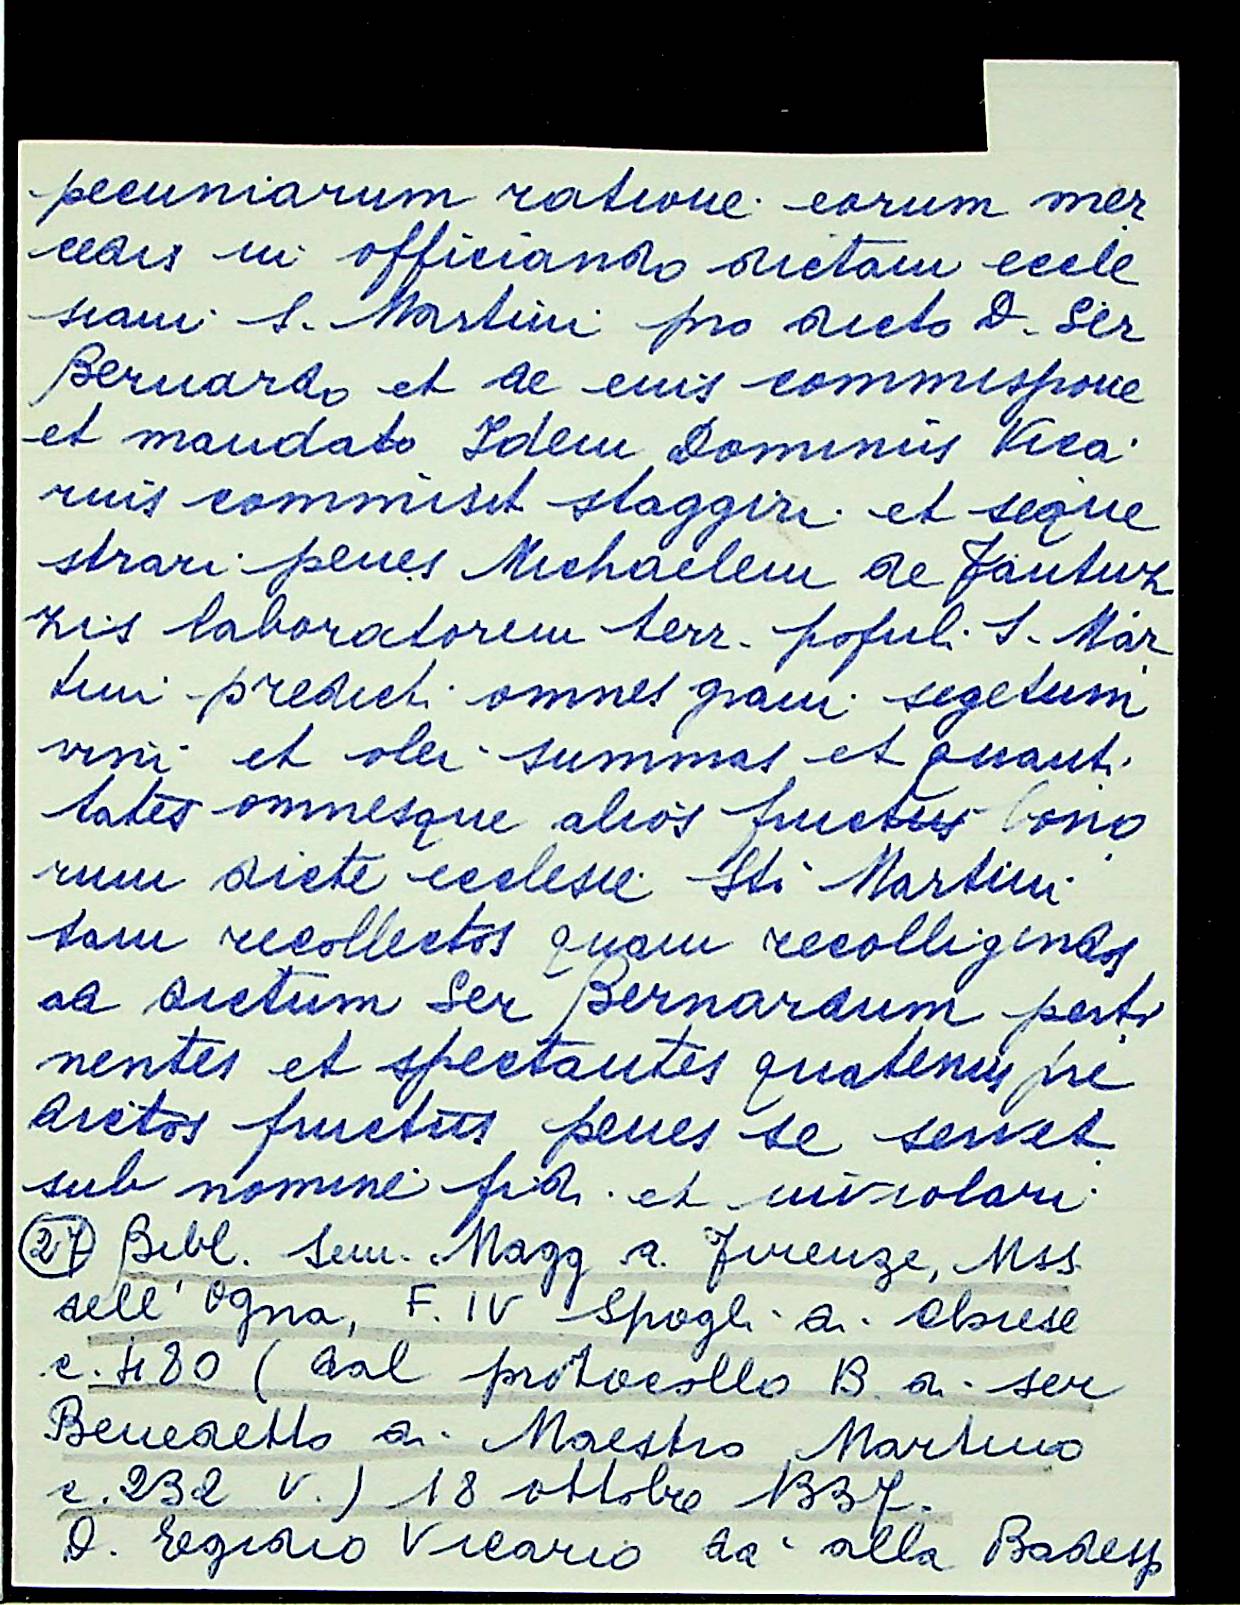 pecuniarum ratione eorum mer
cedis in officiando dictam eccle
siam S. Martini pro dicto D. Ser
Bernardo et de eius commissione
et mandato Idem Dominus Vica
rius commisit staggiri et seque
strari penes Michaelem de Fantuz
zis laboratorem terr. populi S. Mar
tini predicti omnes grani segetum
vini et olei summas et quanti
tates omnesque alios fructus bono
rum dicte ecclesie Sti Martini
tam recollectos quam recolligendos
ad dictum Ser Bernardum perti
nentes et spectantes quatenus pre
dictos fructus penes se servet
sub nomine fidi et
(27) Bibl. Sem. Magg. di Firenze, Mss
dell'Ogna, F. IV Spogli di Chiese
c. 480 (dal protocollo B. di ser
Benedetto di Maestro Martino
c. 232 v.) 18 ottobre 1337.
D. Egidio Vicario da' alla Badess